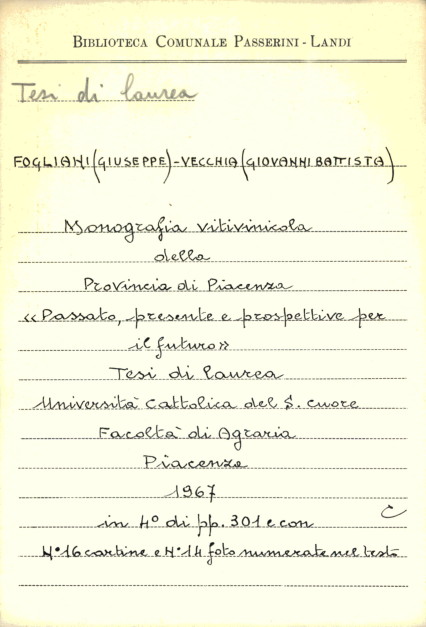 BIBLIOTECA COMUNALE PASSERINI - LANDI
Tesi di laurea
FOGLIANI (GIUSEPPE) - VECCHIA (GIOVANNI BATTISTA)
Monografia vitivinicola
della
Provincia di Piacenza
«Passato, presente e prospettive per
il futuro»
Tesi di laurea
Università Cattolica del S. Cuore
Facoltà di Agraria
Piacenza
1967
C
in 4° di pp. 301 e con
N° 16 cartine e N° 14 foto numerate nel testo